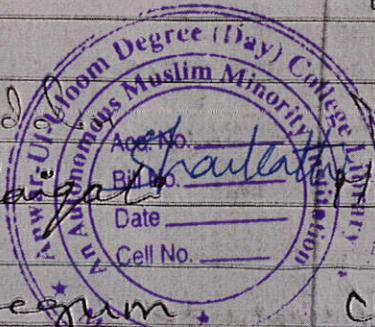 Anwar-Ul-Uloom Degree (Day) College Library
An Autonomous Muslim Minority Institution
Acc. No.
Bill No.
Date
Cell No.